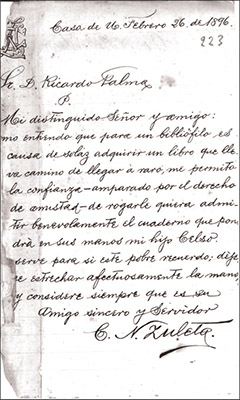 Casa de U. Febrero 26 de 1896.
223
Sr. D. Ricardo Palma
P.
Mi distinguido Señor y amigo:
mo entiendo que para un bibliófilo es
causa de solaz adquirir un libro que lle
va camino de llegar á raro, me permito
la confianza—amparado por el derecho
de amistad—de rogarle quiera admi-
tir benevolamente el cuaderno que pon
drá en sus manos mi hijo Celso.
serve para si este pobre recuerdo; déje
se estrechar afectuosamente la mano,
y considere siempre que es su
amigo sincero y servidor
C. N. Zuleta.